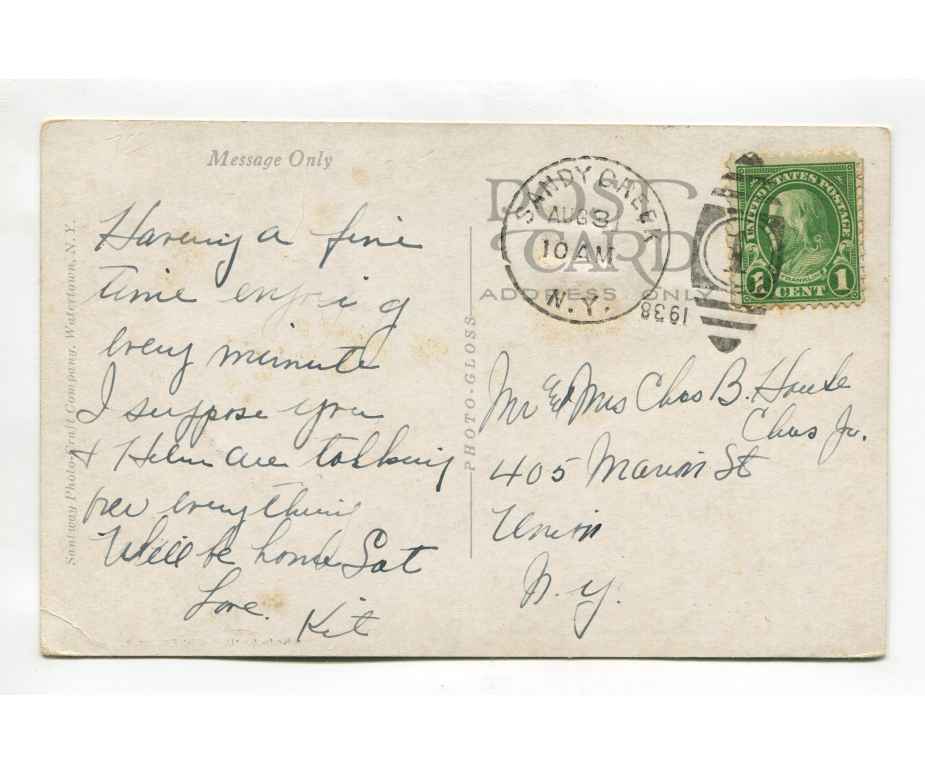 Message Only
Having a fine
time enjoying
every minute
I suppose you
& Helen are talking
over everything
Will be home Sat
Love.
Kit
Santway Photo-Craft Company, Watertown, N.Y.
PHOTO-GLOSS
POST
CARD
ADDRESS ONLY
SANDY CREEK
AUG 8
10 AM
N.Y.
1938
UNITED STATES POSTAGE
FRANKLIN
1 CENT 1
Mr & Mrs Chas B. House
Chas Jr.
405 Marion St
Union
N.Y.